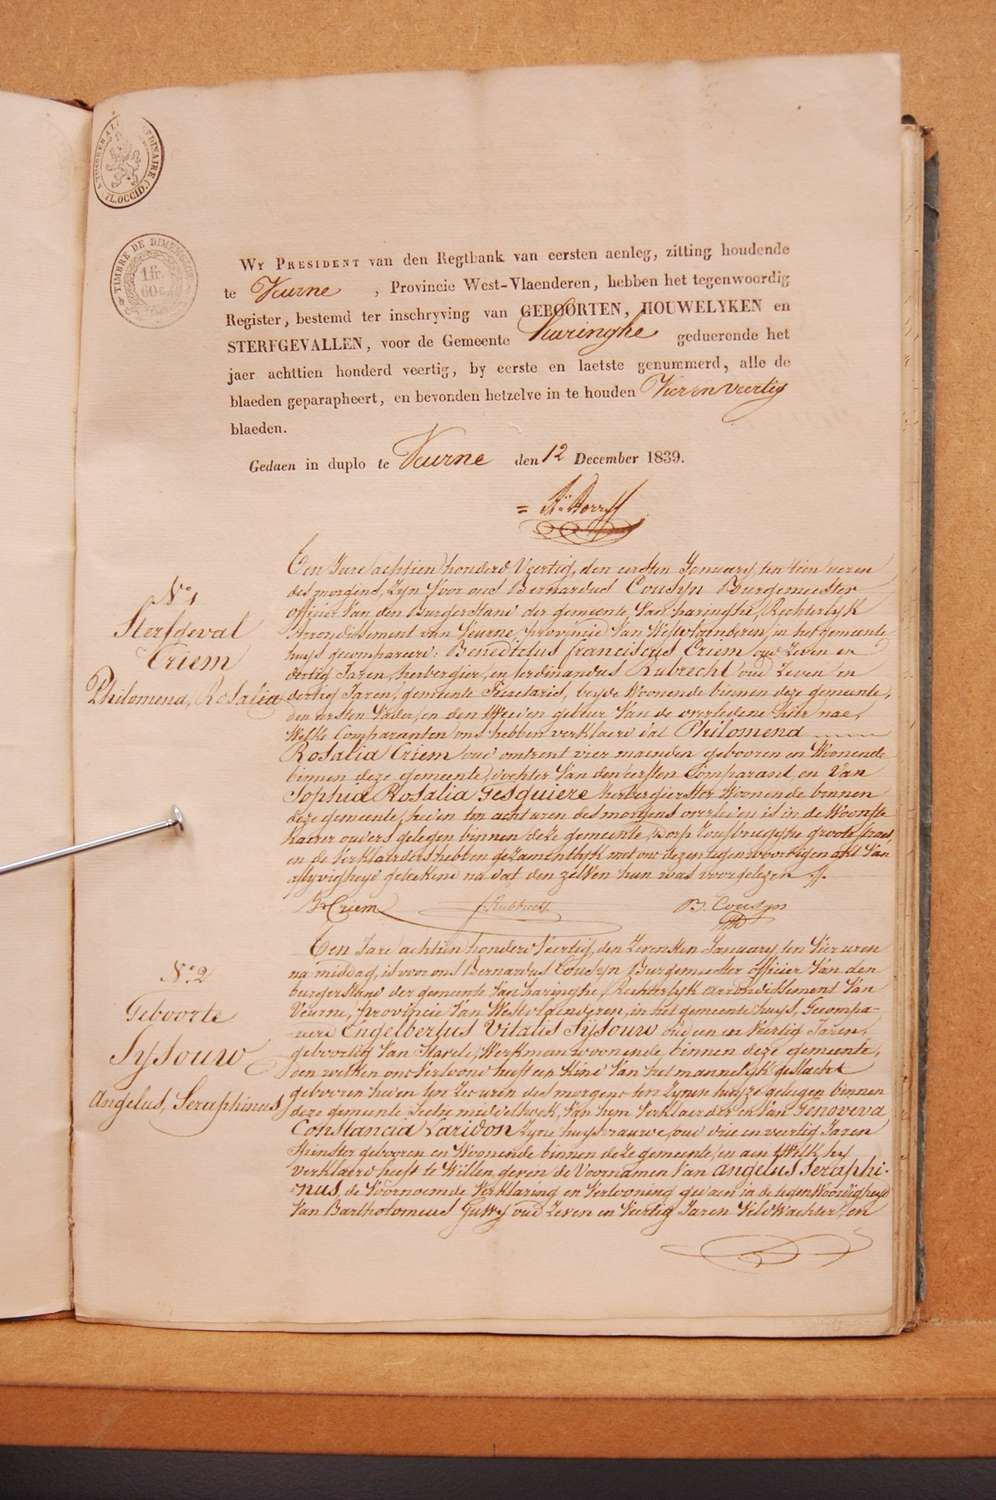 TIMBRE DE DIMENSION
1 fr.
60 c.
WY PRESIDENT van den Regtbank van eersten aenleg, zitting houdende
te Veurne , Provincie West-Vlaenderen, hebben het tegenwoordig
Register, bestemd ter inschryving van GEBOORTEN, HOUWELYKEN en
STERFGEVALLEN, voor de Gemeente Haringhe geduerende het
jaer achttien honderd veertig, by eerste en laetste genummerd, alle de
blaeden geparapheert, en bevonden hetzelve in te houden Vier en veertig
blaeden.
Gedaen in duplo te Veurne den 12 December 1839.
N.º 1
Sterfgeval
Criem
Philomena, Rosalia
Een Jare achtien honderd Veertig, den eersten January ten tien uren
des morgens, Zyn Voor ons Bernardus Cousyn Burgemeester
officier Van den Burgerstand der gemeente Van haringhe, Rechterlyk
arrondissement van Veurne, provincie Van Westvlaenderen, in het gemeente
huys gecompareerd: Benedictus franciscus Criem oud Zeven en
dertig Jaren, herbergier, en ferdinandus Rubrecht oud Zeven en
dertig Jaren, gemeente Secretaris, beyde Woonende binnen deze gemeente,
den eersten Vader, en den tweeden gebuer Van de overledene hier nae,
Welke Comparanten ons hebben verklaerd dat Philomena
Rosalia Criem oud omtrent vier maenden gebooren en Woonende
binnen deze gemeente, dochter Van den eersten Comparant en Van
Sophia Rosalia Gesquiere herbergierster Woonende binnen
deze gemeente, heden ten acht uren des morgens overleden is in de Woonste
haerer ouders gelegen binnen deze gemeente, Dorp Rousbrugghe groote straet,
en de Verklaerders hebben gezamentlyk met ons dezen tegenwoordigen akt Van
aflyvigheyd geteekend na dat den zelven hun was voorgelezen
B Criem f. Rubrecht B. Cousyn
N.º 2
Geboorte
Sysouw
Angelus, Seraphinus
Een Jare achtien honderd Veertig, den Zevensten January, ten Vier uren
na middag, is voor ons Bernardus Cousyn Burgemeester officier Van den
burgerstand der gemeente Van haringhe, Rechterlyk arrondissement Van
Veurne, provincie Van Westvlaenderen, in het gemeente huys, Gecompa-
reerd Engelbertus Vitalis Sysouw oud een en Veertig Jaren,
geboortig Van Stavele, Werkman woonende binnen deze gemeente,
den welken ons Vertoond heeft een kind Van het mannelyk geslacht
gebooren heden ten Zes uren des morgens ten Zynen huyze gelegen binnen
deze gemeente Sectie middelhoek, Van hem Verklaerder en Van Genoveva
Constancia Laridon Zyne huysvrauwe, oud drie en veertig Jaren
gebooren en Woonende binnen deze gemeente, en aen t' Welk hy
verklaerd heeft te Willen geven de Voornamen Van Angelus Seraphi-
nus, de Voornoemde Verklaring en Vertooning gedaen in de tegenwoordigheyd
Van Bartholomeus oud Zeven en Veertig Jaren Veldwachter, en